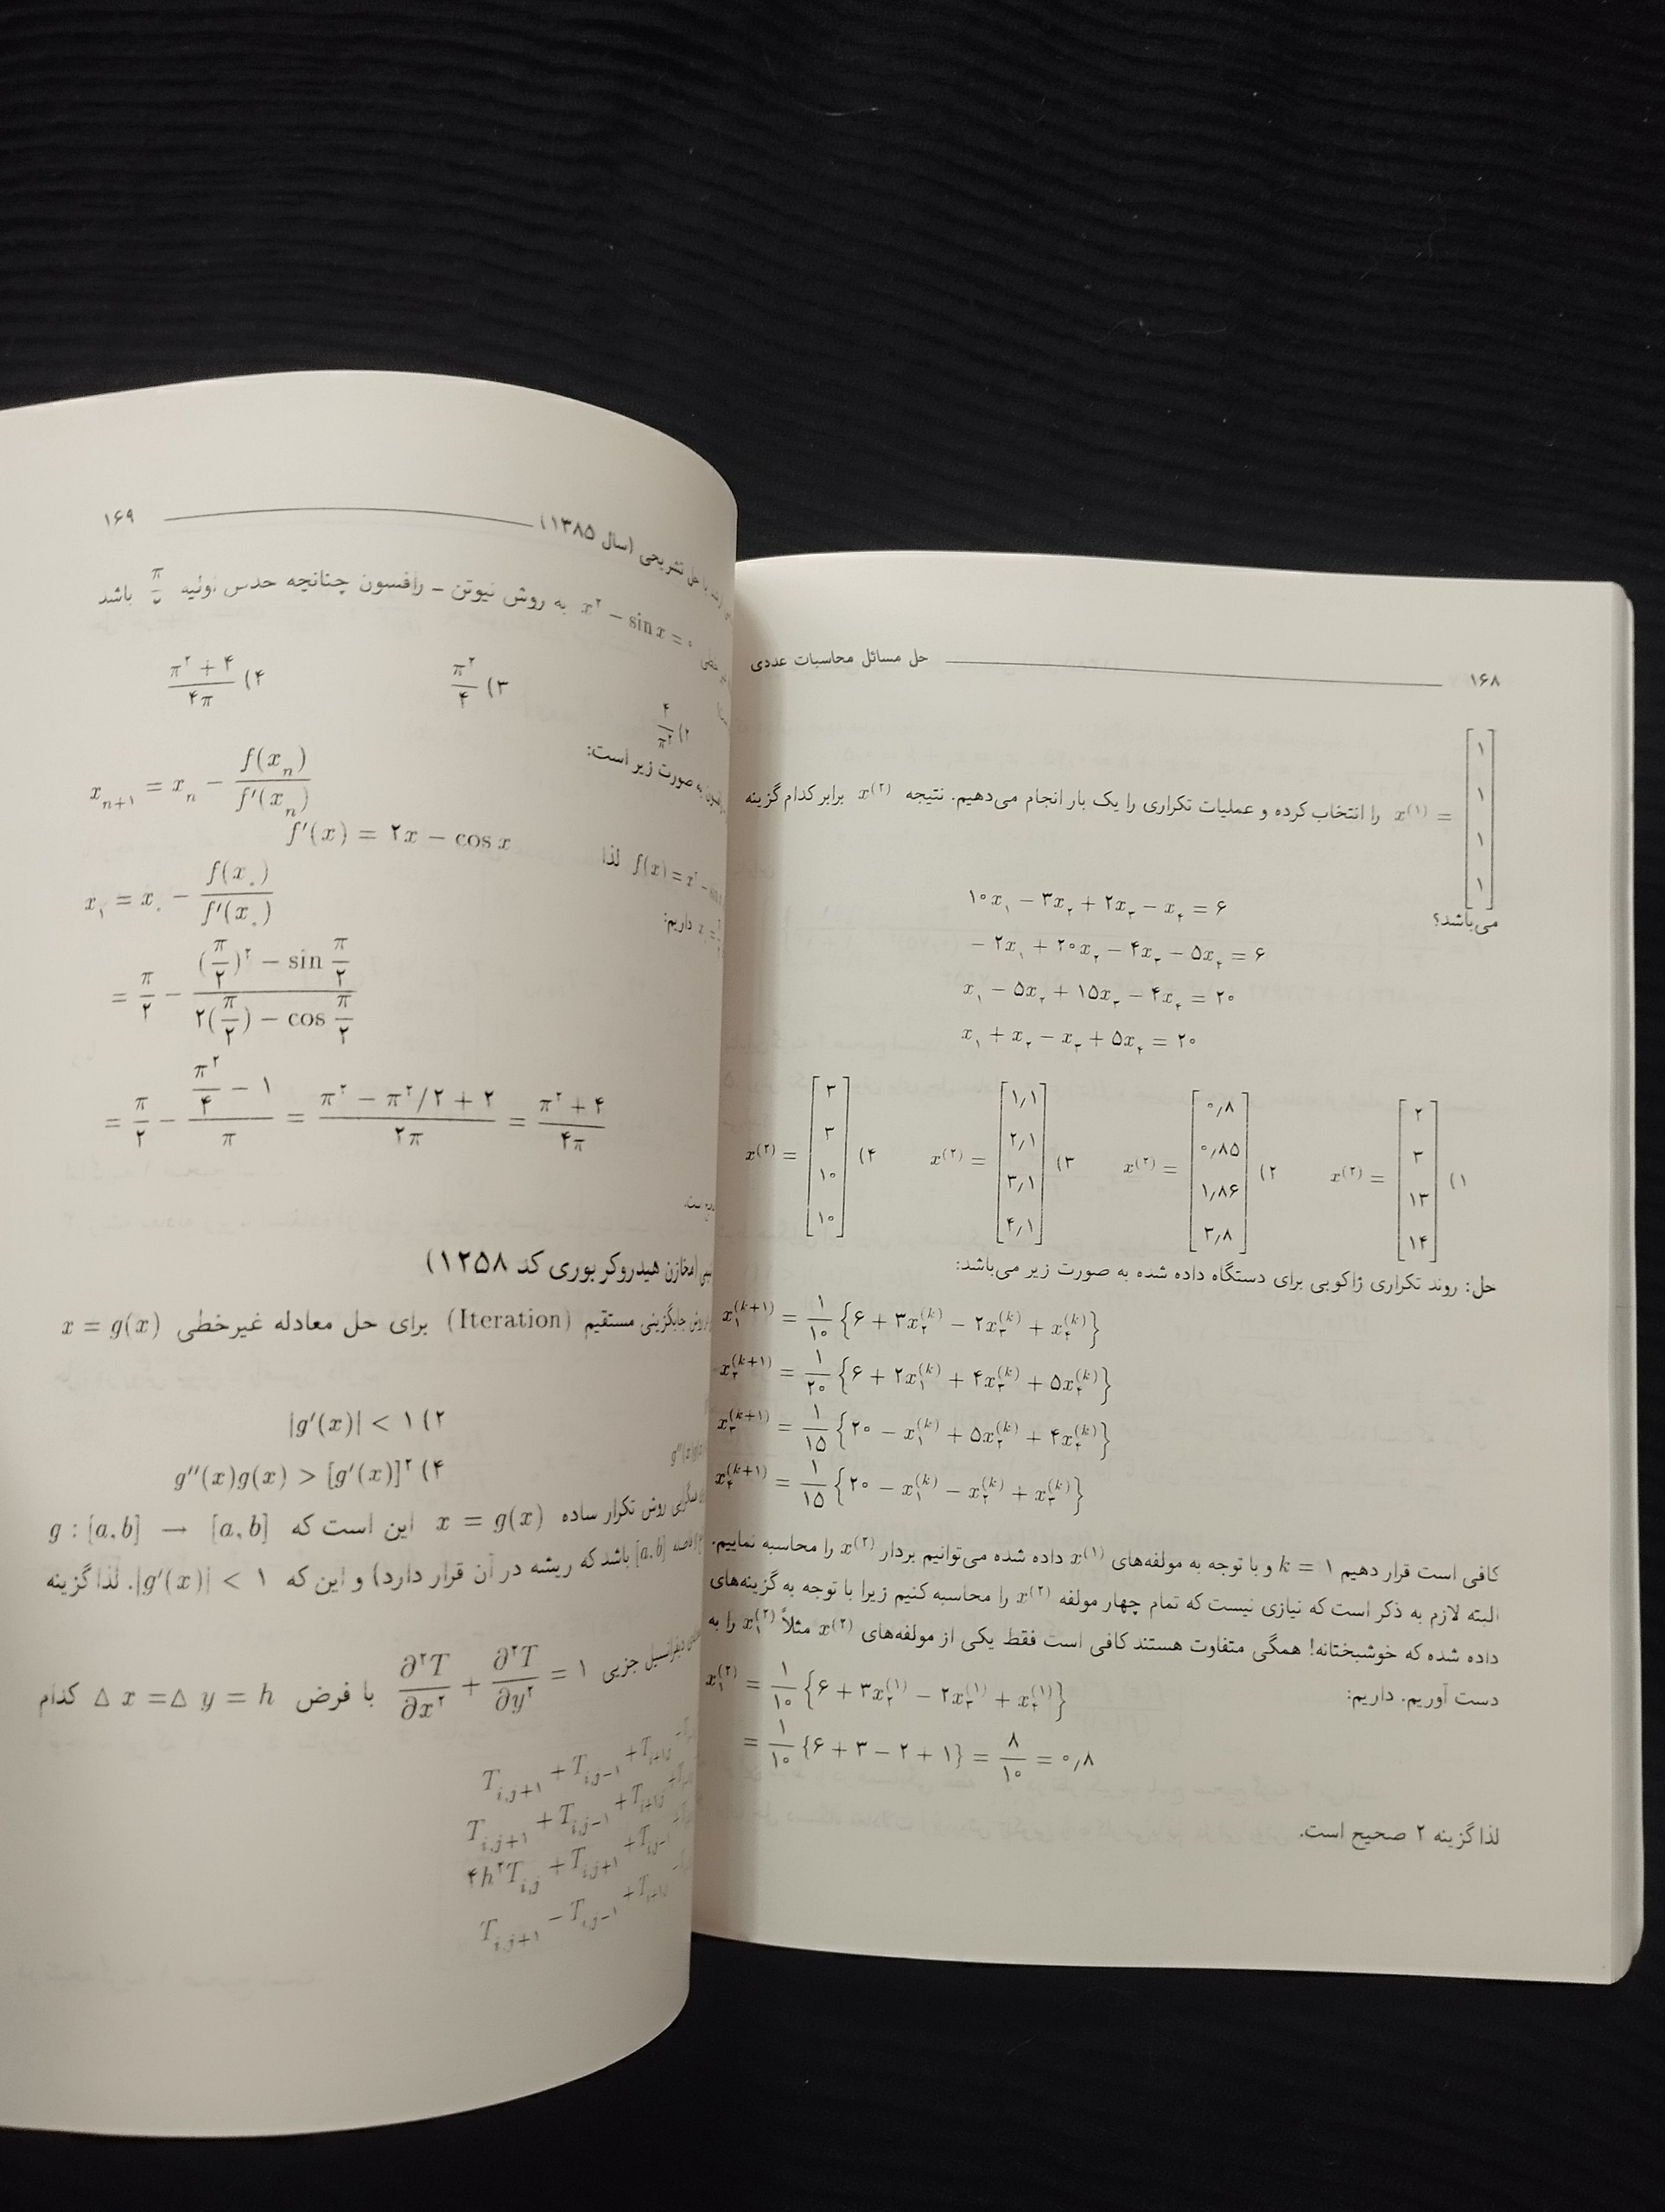 ۱۶۸ حل مسائل محاسبات عددی
x^(۱) = [۱ ۱ ۱ ۱] را انتخاب کرده و عملیات تکراری را یک بار انجام می‌دهیم. نتیجه x^(۲) برابر کدام گزینه
می‌باشد؟
۱۰x_۱ − ۳x_۲ + ۲x_۳ − x_۴ = ۶
− ۲x_۱ + ۲۰x_۲ − ۴x_۳ − ۵x_۴ = ۶
x_۱ − ۵x_۲ + ۱۵x_۳ − ۴x_۴ = ۲۰
x_۱ + x_۲ − x_۳ + ۵x_۴ = ۲۰
۱) x^(۲) = [۲ ۳ ۱۳ ۱۴] ۲) x^(۲) = [۰٫۸ ۰٫۸۵ ۱٫۸۶ ۳٫۸] ۳) x^(۲) = [۱٫۱ ۲٫۱ ۳٫۱ ۴٫۱] ۴) x^(۲) = [۳ ۳ ۱۰ ۱۰]
حل: روند تکراری ژاکوبی برای دستگاه داده شده به صورت زیر می‌باشد:
x_۱^(k+۱) = ۱/۱۰ {۶ + ۳x_۲^(k) − ۲x_۳^(k) + x_۴^(k)}
x_۲^(k+۱) = ۱/۲۰ {۶ + ۲x_۱^(k) + ۴x_۳^(k) + ۵x_۴^(k)}
x_۳^(k+۱) = ۱/۱۵ {۲۰ − x_۱^(k) + ۵x_۲^(k) + ۴x_۴^(k)}
x_۴^(k+۱) = ۱/۱۵ {۲۰ − x_۱^(k) − x_۲^(k) + x_۳^(k)}
کافی است قرار دهیم k = ۱ و با توجه به مولفه‌های x^(۱) داده شده می‌توانیم بردار x^(۲) را محاسبه نماییم.
البته لازم به ذکر است که نیازی نیست که تمام چهار مولفه x^(۲) را محاسبه کنیم زیرا با توجه به گزینه‌های
داده شده که خوشبختانه! همگی متفاوت هستند کافی است فقط یکی از مولفه‌های x^(۲) مثلاً x_۱^(۲) را به
دست آوریم. داریم: x_۱^(۲) = ۱/۱۰ {۶ + ۳x_۲^(۱) − ۲x_۳^(۱) + x_۴^(۱)}
= ۱/۱۰ {۶ + ۳ − ۲ + ۱} = ۸/۱۰ = ۰٫۸
لذا گزینه ۲ صحیح است.
با حل تشریحی (سال ۱۳۸۵) ۱۶۹
x^۲ − sin x = ۰ به روش نیوتن - رافسون چنانچه حدس اولیه باشد
۲) ۴/π^۲ ۳) π^۲/۴ ۴) (π^۲ + ۴)/۴π
به صورت زیر است:
x_{n+۱} = x_n − f(x_n)/f′(x_n)
لذا f′(x) = ۲x − cos x
داریم: x_۱ = x_۰ − f(x_۰)/f′(x_۰)
= π/۲ − ((π/۲)^۲ − sin π/۲)/(۲(π/۲) − cos π/۲)
= π/۲ − (π^۲/۴ − ۱)/π = (π^۲ − π^۲/۲ + ۲)/۲π = (π^۲ + ۴)/۴π
(مخازن هیدروکربوری کد ۱۲۵۸)
روش جایگزینی مستقیم (Iteration) برای حل معادله غیرخطی x = g(x)
۲) |g′(x)| < ۱
۴) g″(x)g(x) > [g′(x)]^۲
روش تکرار ساده x = g(x) این است که g : [a, b] → [a, b]
[a, b] باشد که ریشه در آن قرار دارد) و این که |g′(x)| < ۱. لذا گزینه
دیفرانسیل جزیی ∂^۲T/∂x^۲ + ∂^۲T/∂y^۲ = ۱ با فرض Δx = Δy = h کدام
T_{i,j+۱} + T_{i,j−۱} + T_{i+۱,j}
T_{i,j+۱} + T_{i,j−۱} + T_{i+۱,j}
۴h^۲T_{i,j} + T_{i,j+۱} + T_{i,j−۱}
T_{i,j+۱} − T_{i,j−۱} + T_{i+۱,j}